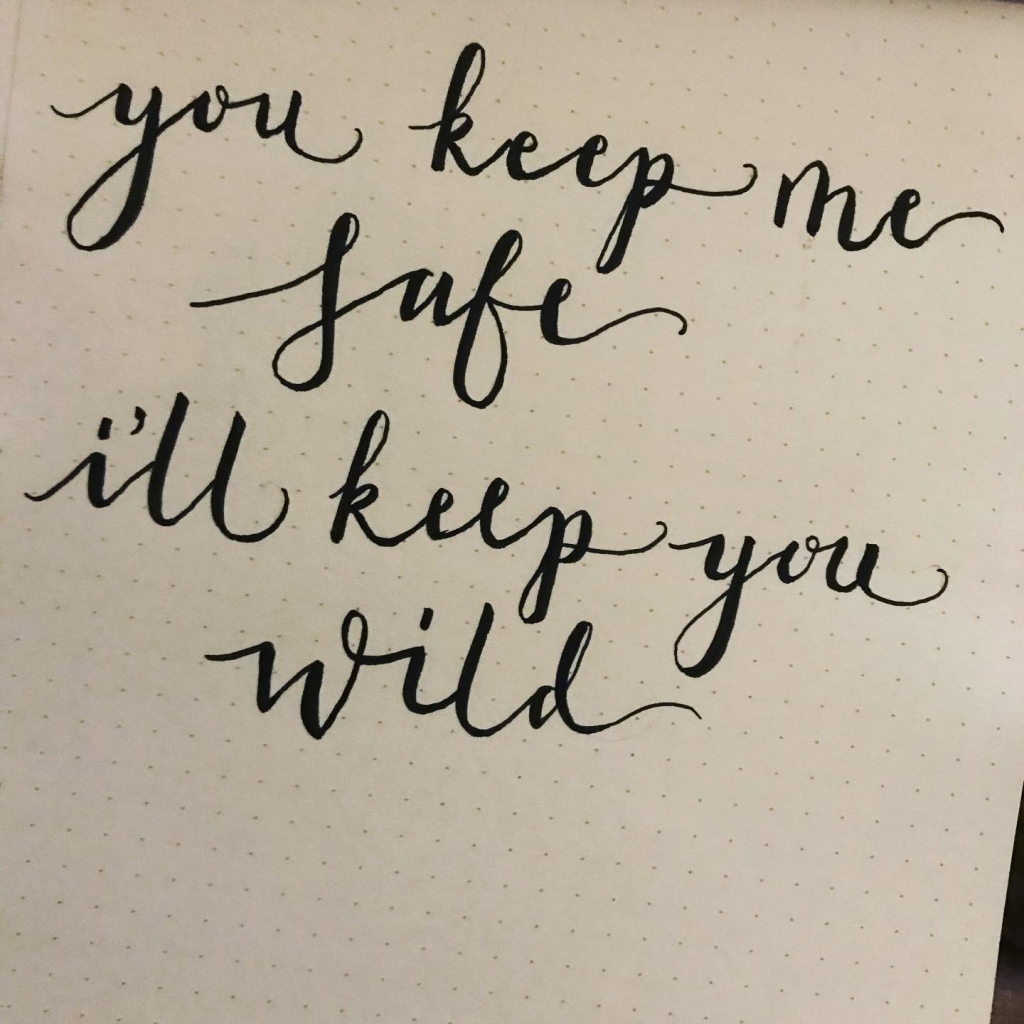 you keep me
safe
i'll keep you
wild